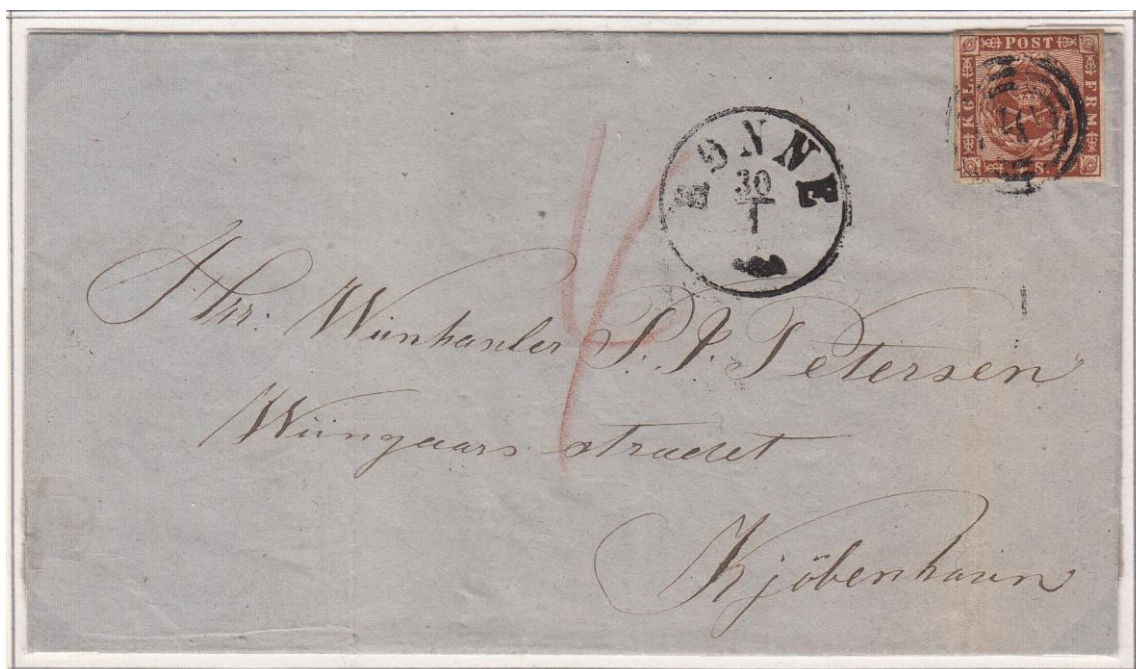 POST
KGL
FRM
S.
RÖNNE
30
1
4
Hr: Wiinhanler P. J. Petersen
Wiingaars strædet
Kjöbenhavn